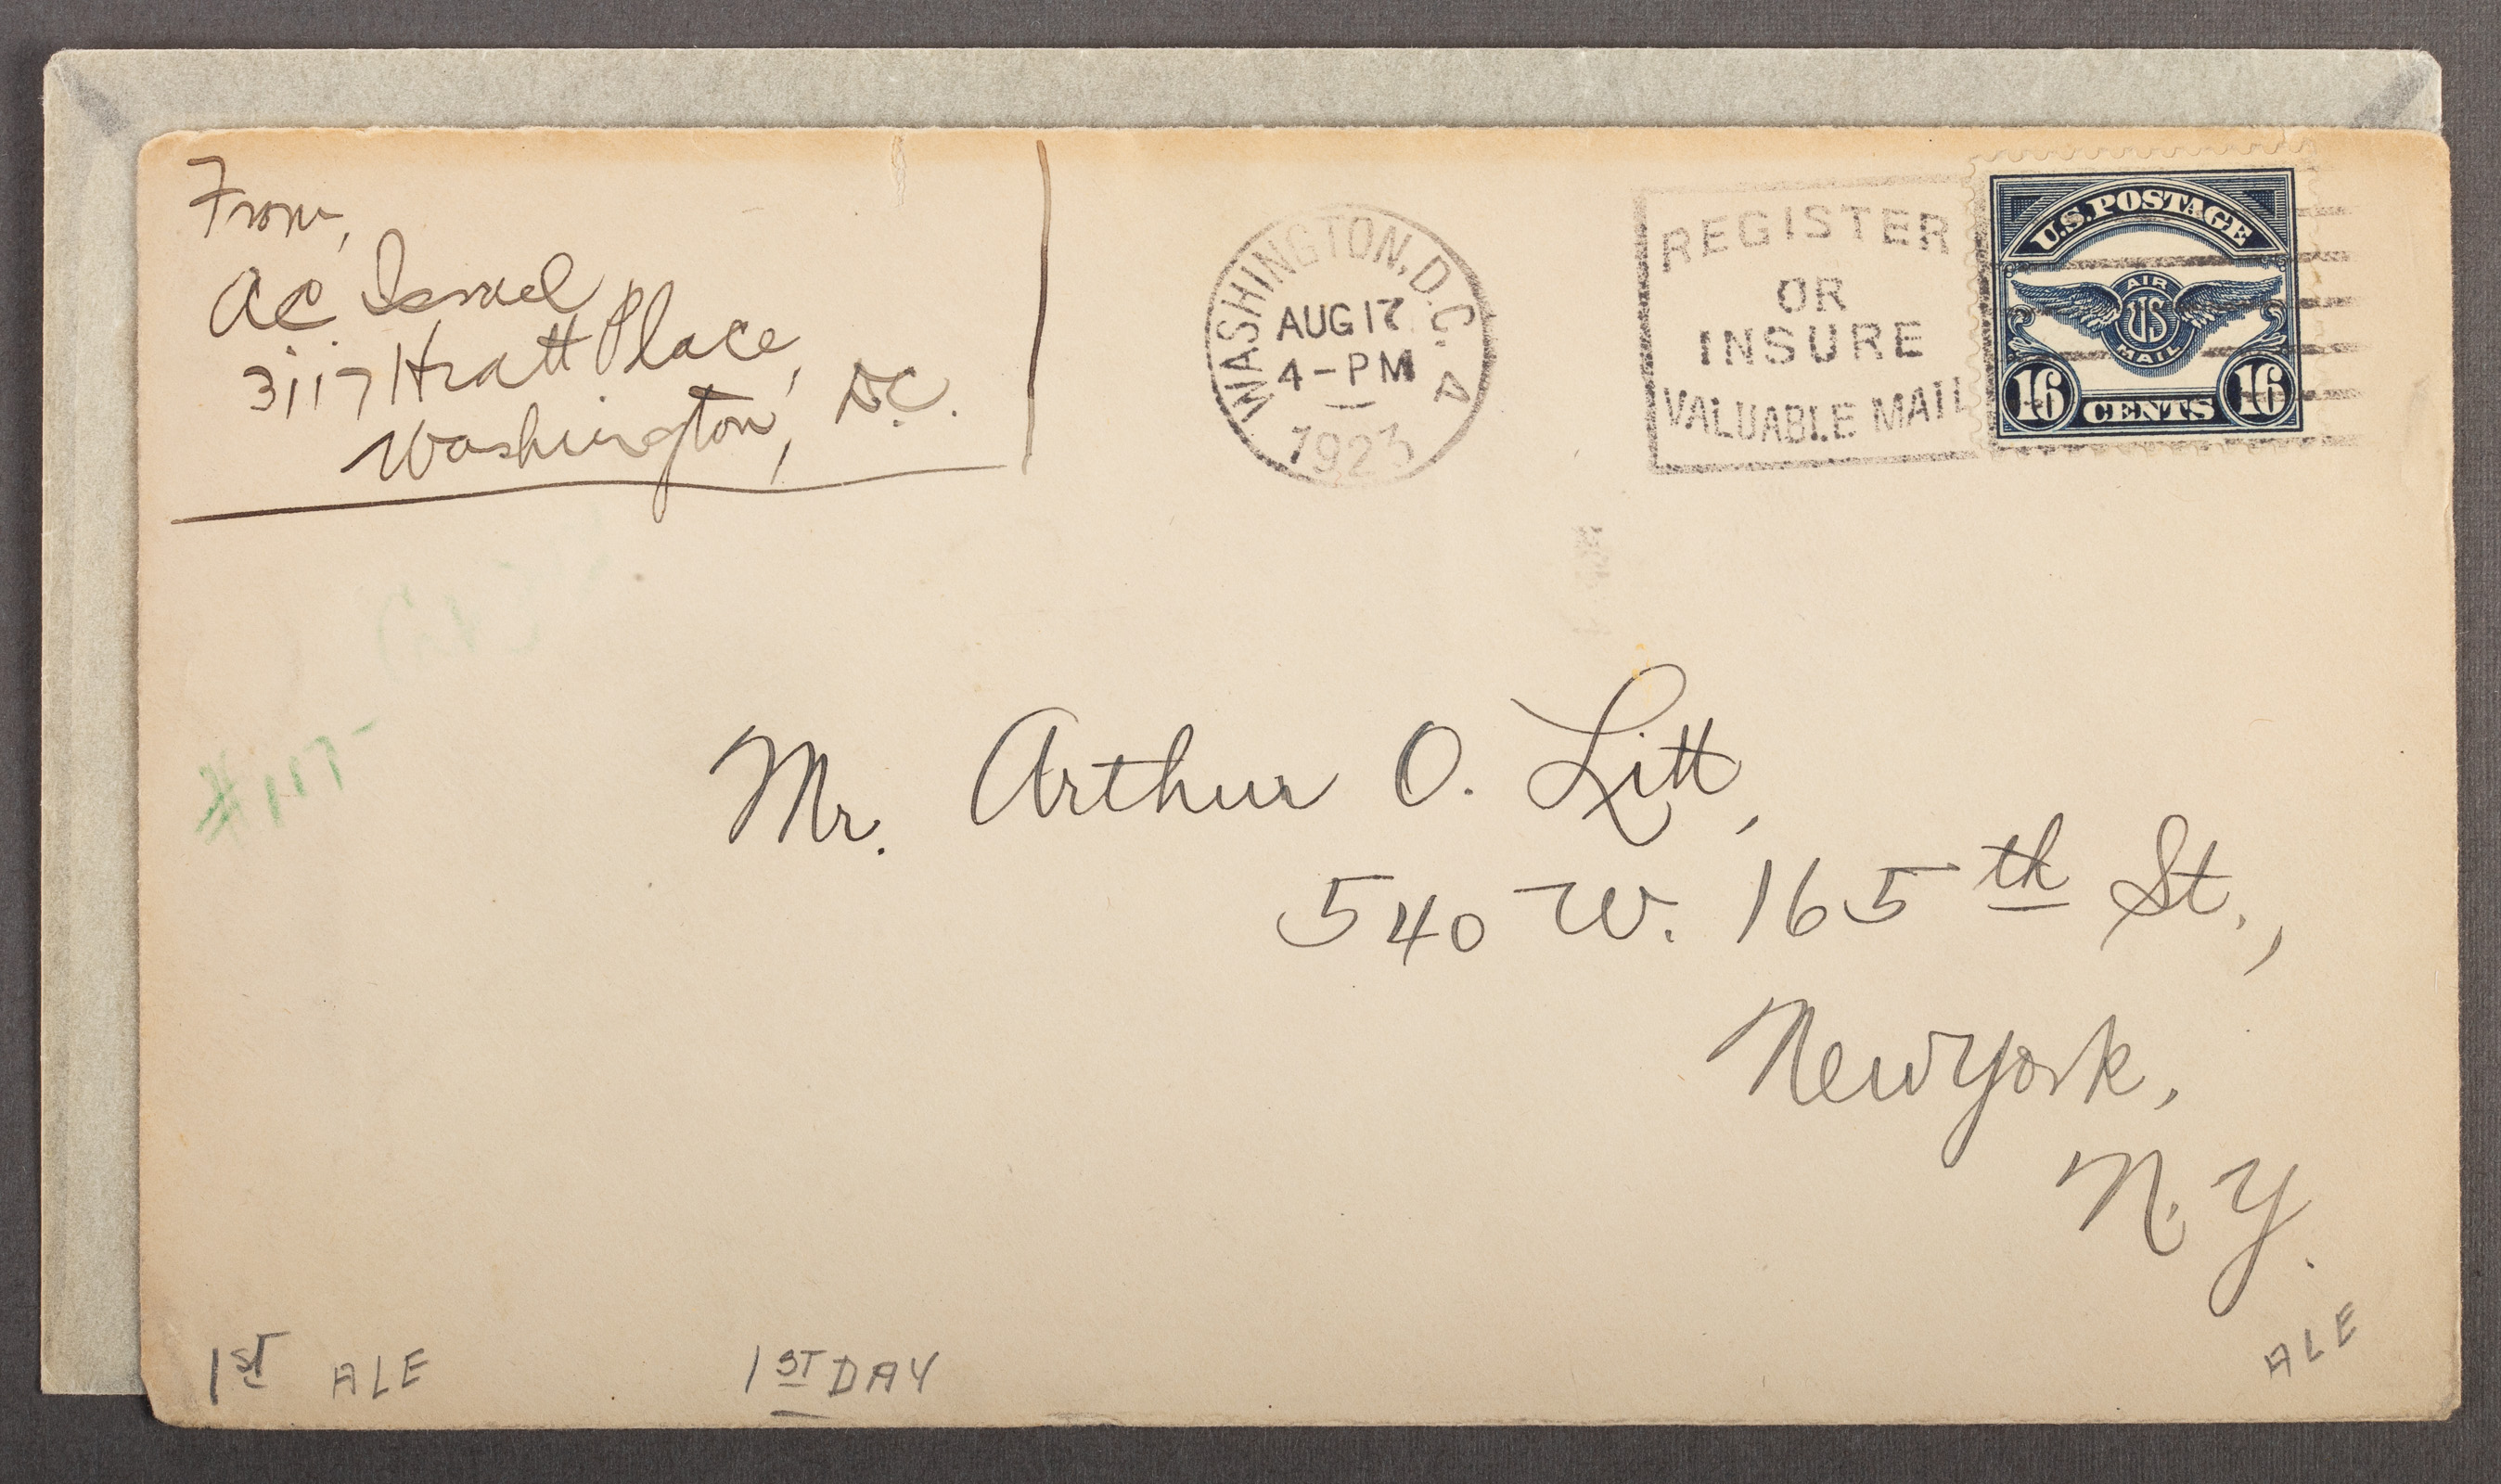 From,
AC Israel
3117 Hiatt Place,
Washington, D.C.
WASHINGTON, D.C. A
AUG 17
4-PM
1923
REGISTER
OR
INSURE
VALUABLE MAIL
U.S. POSTAGE
AIR
US
MAIL
16 CENTS 16
Mr. Arthur O. Litt,
540 W. 165th St.,
New York,
N.Y.
1ST ALE
1ST DAY
ALE